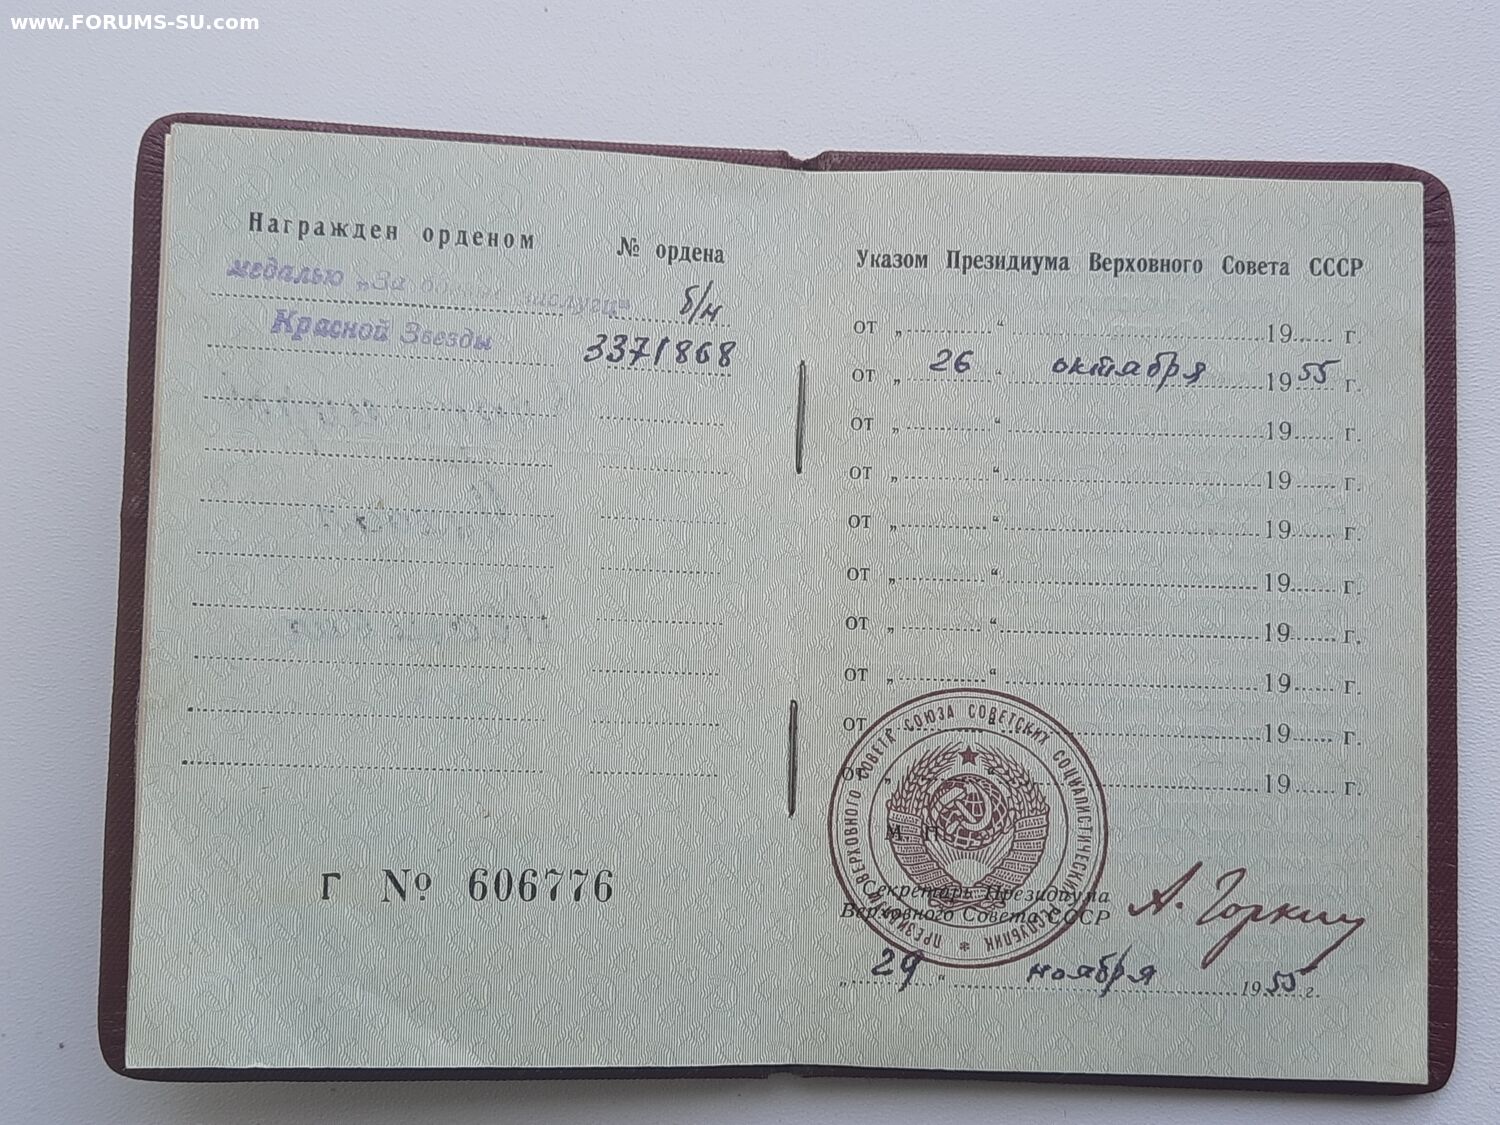 www.FORUMS-SU.com
Награжден орденом № ордена
медалью „За боевые заслуги“ б/н
Красной Звезды 3371868
Г № 606776
Указом Президиума Верховного Совета СССР
от „ “ 19 г.
от „ 26 “ октября 19 55 г.
от „ “ 19 г.
от „ “ 19 г.
от „ “ 19 г.
от „ “ 19 г.
от „ “ 19 г.
от „ “ 19 г.
от „ “ 19 г.
от „ “ 19 г.
ПРЕЗИДИУМ ВЕРХОВНОГО СОВЕТА СОЮЗА СОВЕТСКИХ СОЦИАЛИСТИЧЕСКИХ РЕСПУБЛИК
М. П.
Секретарь Президиума
Верховного Совета СССР А. Горкин
„ 29 “ ноября 19 55 г.